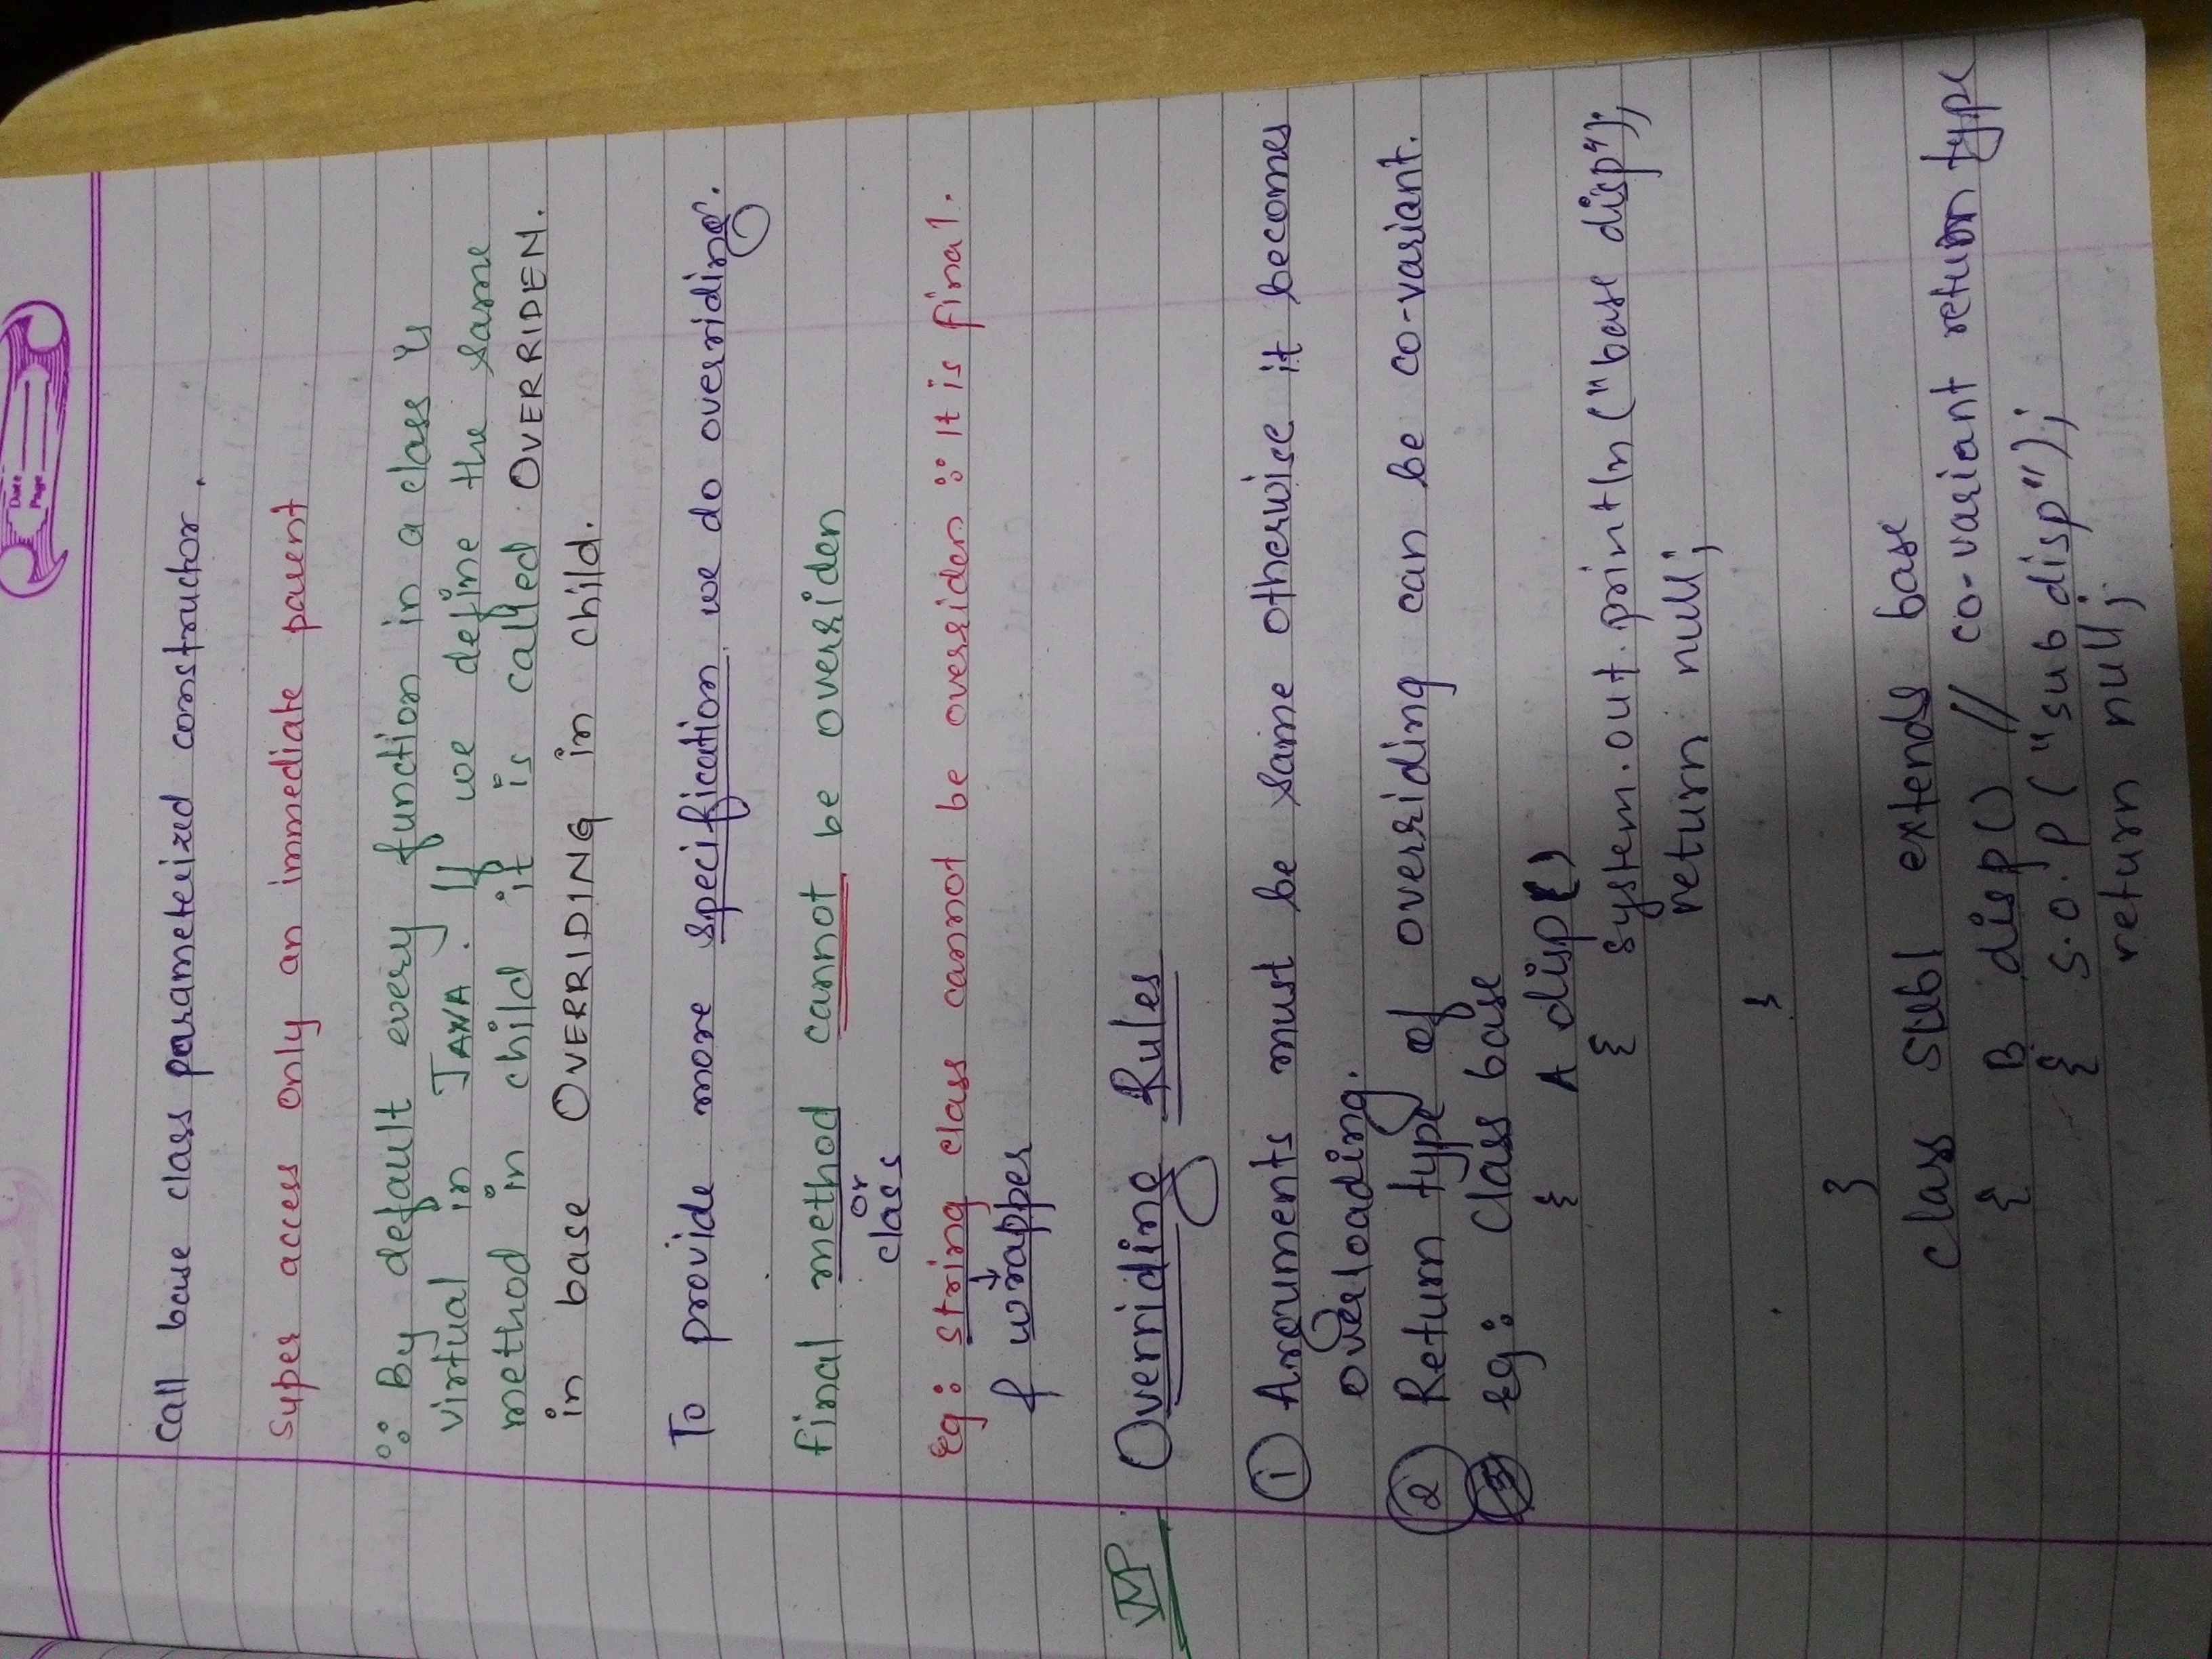 Date
Page
call base class parameterized constructor.
super access only an immediate parent
∵ By default every function in a class is
virtual in JAVA. If we define the same
method in child it is called OVERRIDEN.
in base OVERRIDING in child.
To provide more specification we do overriding.
final method cannot be overriden
or
class
eg: string class cannot be overriden ∵ It is final.
& wrapper
VIP
Overriding Rules
① Arguments must be same otherwise it becomes
overloading.
② Return type of overriding can be co-variant.
eg: Class base
{ A disp()
{ system.out.println("base disp");
return null;
}
}
class sub1 extends base
{ B disp() // co-variant return type
{ S.O.P("sub disp");
return null;